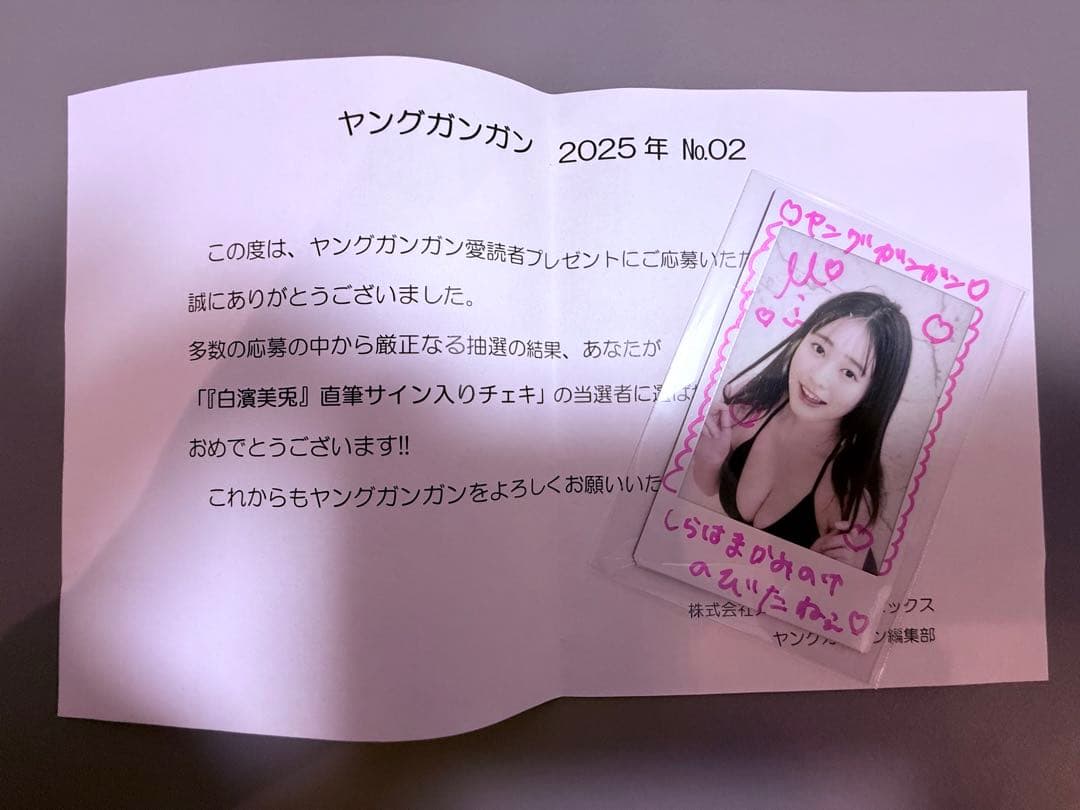 ヤングガンガン 2025年 №02
この度は、ヤングガンガン愛読者プレゼントにご応募いただ
誠にありがとうございました。
多数の応募の中から厳正なる抽選の結果、あなたが
「『白濱美兎』直筆サイン入りチェキ」の当選者に選ばれ
おめでとうございます!!
これからもヤングガンガンをよろしくお願いいた
株式会社 ニックス
ヤングガ ン編集部
♡ヤングガンガン♡
しらはまかみのけ
のびたねぇ♡